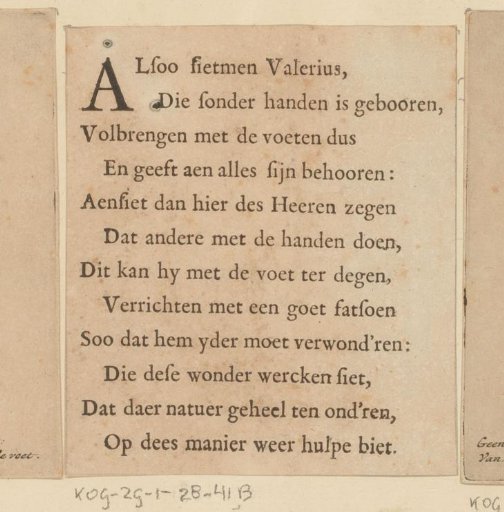 ALſoo ſietmen Valerius,
Die ſonder handen is gebooren,
Volbrengen met de voeten dus
En geeft aen alles ſijn behooren:
Aenſiet dan hier des Heeren zegen
Dat andere met de handen doen,
Dit kan hy met de voet ter degen,
Verrichten met een goet fatſoen
Soo dat hem yder moet verwond'ren:
Die deſe wonder wercken ſiet,
Dat daer natuer geheel ten ond'ren,
Op dees manier weer hulpe biet.
e voet.
Geen
Van
KOG-2G-1-28-41B
KOG